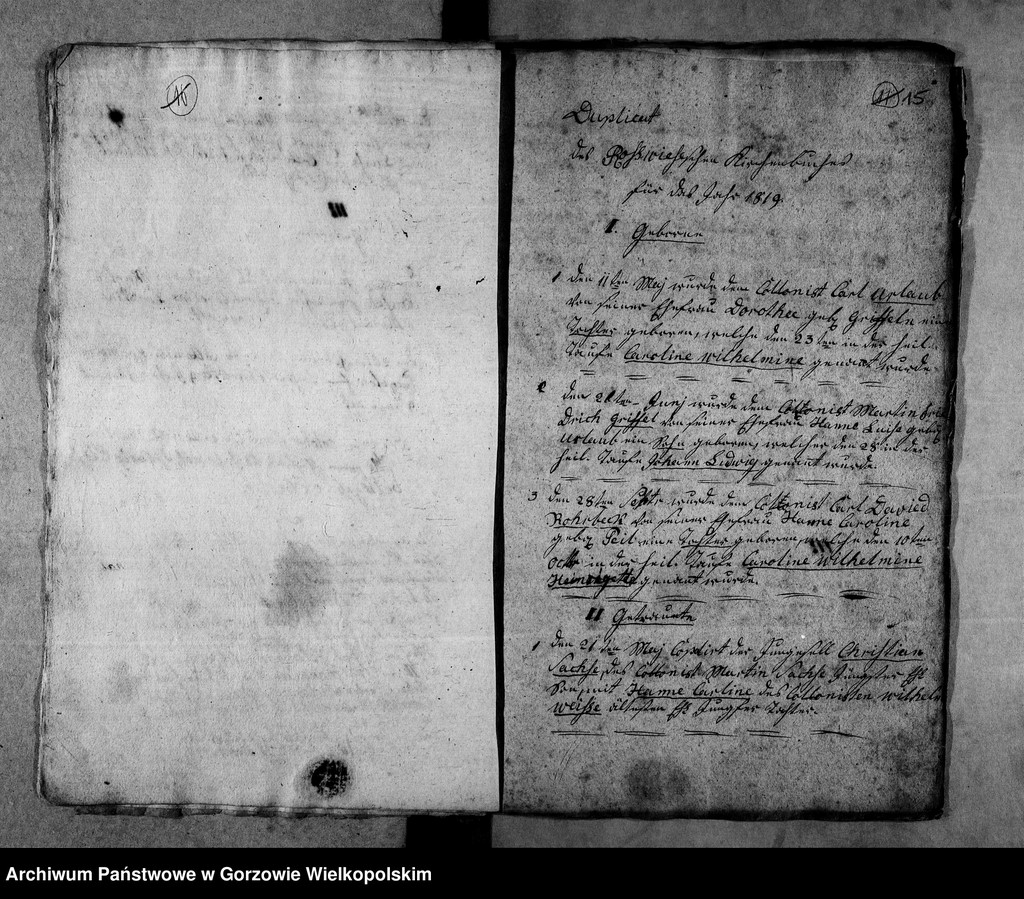 16
11 15
Duplicat
des Roßwieseschen Kirchenbuches
für das Jahr 1819.
I. Geborne
1 den 11ten Maj wurde dem Collonist Carl Urlaub
von seiner Ehefrau Dorothee geb. Griffeln eine
Tochter geboren, welche den 23ten in der heil.
Taufe Caroline Wilhelmine genant wurde.
2 den 21ten Junj wurde dem Collonist Martin Frie
drich Griffel von seiner Ehefrau Hanne Luise geb.
Urlaub ein Sohn geboren, welcher den 28 in der
heil. Taufe Johann Ludwig genant wurde.
3 den 28ten Septr wurde dem Collonist Carl David
Rohrbeck von seiner Ehefrau Hanne Caroline
geb. eine Tochter geboren, welche den 10ten
Octr in der heil. Taufe Caroline Wilhelmine
genant wurde.
II Getraunte
1 den 21ten Maj Copulirt der Junggesell Christian
Sachse, des Collonist Martin Sachse Jüngster
Sohn, mit Hanne Carline des Collonisten Wilhelm
Weiße ältesten Jungfer Tochter.
Archiwum Państwowe w Gorzowie Wielkopolskim